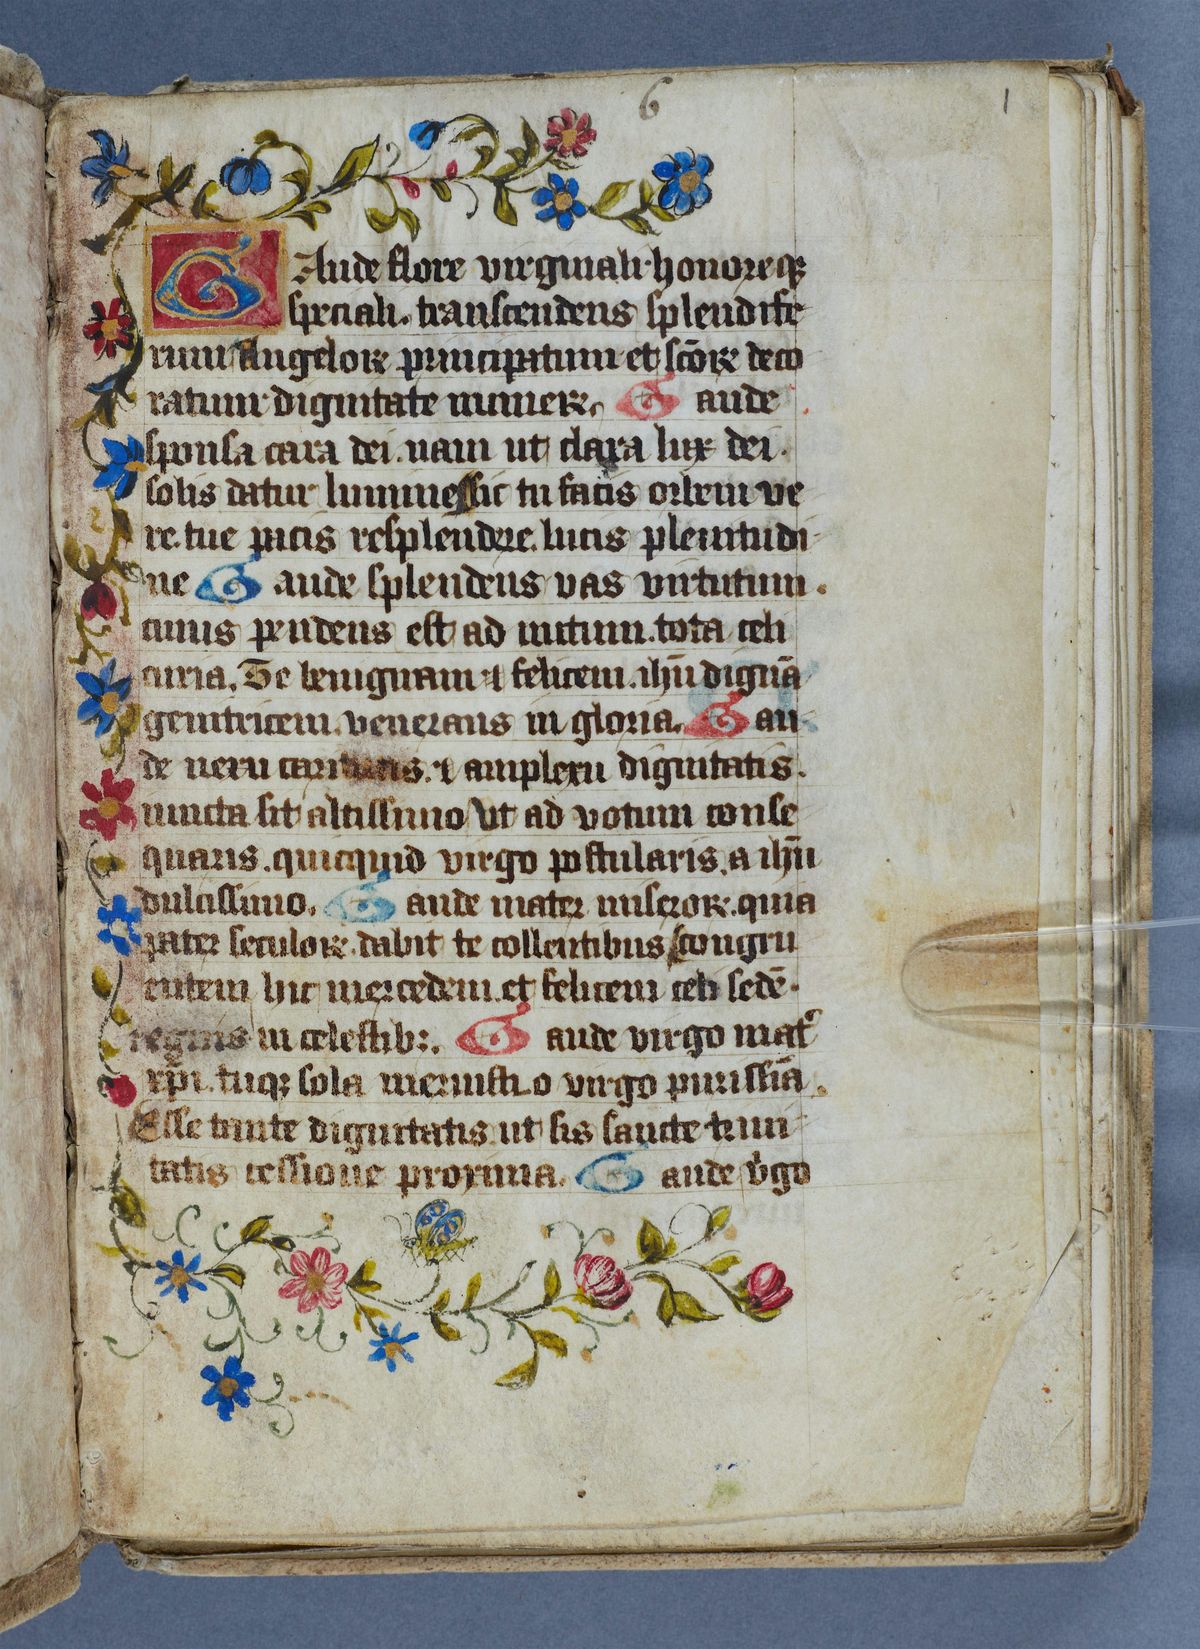 6
1
GAude flore virginali·honoreqꝫ
speciali. transcendens splendife
rum Angeloꝝ principatum et sc̄oꝝ deco
ratum dignitate muneꝝ. G aude
sponsa cara dei.nam ut clara lux dei.
solis datur lumine sic tu facis orbem ve
re.tue pacis resplendere.lucis plenitudi-
ne G aude splendens vas virtutum.
cuius pendens est ad nutum.tota celi
curia. Te benignam ⁊ felicem.ihū dignā
genitricem.venerans in gloria. G au
de nexu caritatis.⁊ amplexu dignitatis.
iuncta sit altissimo Vt ad votum conse
quaris.quicquid virgo postularis.a ihū
dulcissimo. G aude mater miseroꝝ.quia
pater seculoꝝ.dabit te collentibus congru
entem hic mercedem.et felicem celi sedē·
regnis in celestibꝫ. G aude virgo mat᷑
xp̄i.tuqꝫ sola meruisti.o virgo purissīa.
Esse tante dignitatis.ut sis sancte trini-
tatis cessione proxima. G aude v̓go